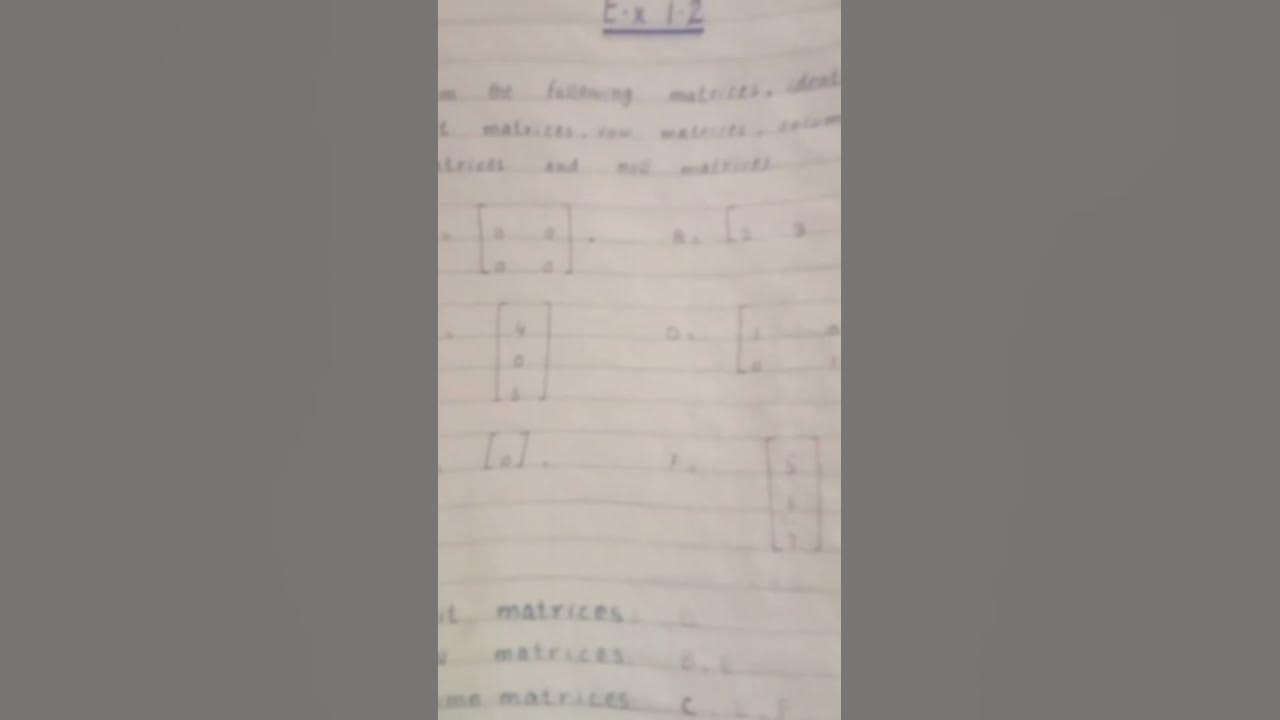 E.x 1.2
the following matrices, ident
matrices, row matrices, colum
trices and null matrices
= [ 0 0 ] . B = [ 2 3
0 0
= [ 4 ] D = [ 1 0
0 0 1
6
[ 0 ] . F = [ 5 ]
matrices D
matrices B, E
matrices C, E, F